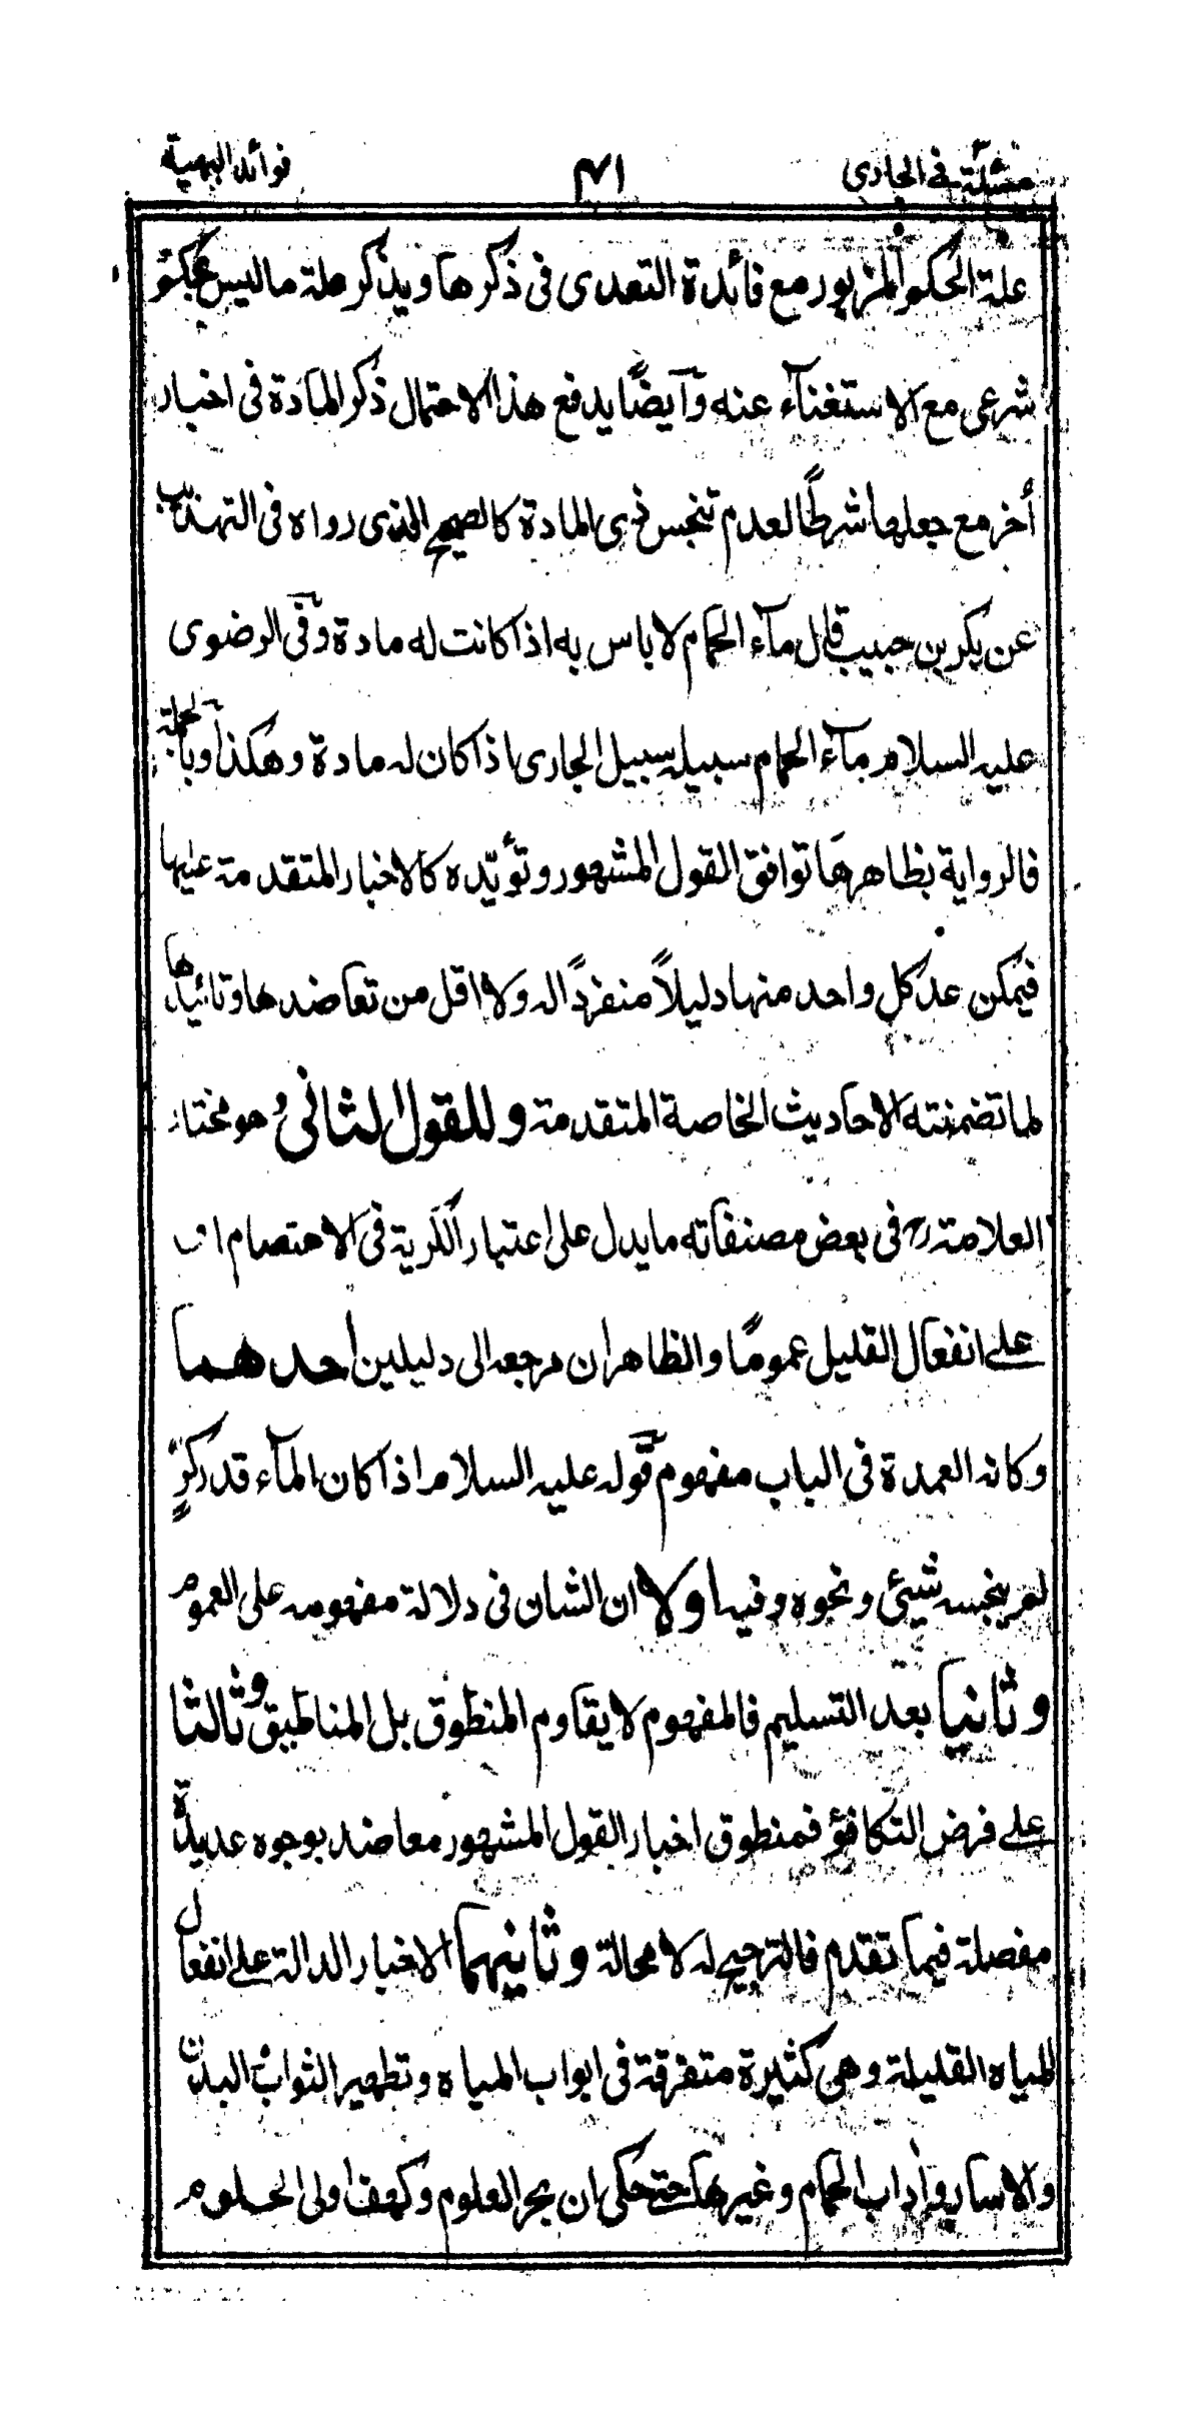 مسئلة فى الجارى ٤٧١ فوائد البهية
علة الحكم المزبور مع فائدة التعدى فى ذكرها ويذكر علة ماليس بحكم
شرعى مع الاستغنآء عنه وآيضًا يدفع هذا الاحتمال ذكر المادّة فى اخبار
أخر مع جعلها شرطًا لعدم تنجس ذى المادة كالصحيح الذى رواه فى التهذيب
عن بكر بن حبيب قال مآء الحمام لا باس به اذا كانت له مادة وفى الرضوى
عليه السلام مآء الحمام سبيله سبيل الجارى اذا كان له مادة وهكذا وبالجملة
فالرواية بظاهرها توافق القول المشهور وتؤيّده كالاخبار المتقدمة عليها
فيمكن عد كل واحد منها دليلاً منفردًا له ولا اقل من تعاضدها وتائيدها
لما تضمنته الاحاديث الخاصة المتقدمة وللقول الثانى وهو مختار
العلامة ره فى بعض مصنفاته ما يدل على اعتبار الكرية فى الاعتصام او
على انفعال القليل عمومًا والظاهر ان مرجعه الى دليلين احدهما
وكانه العمدة فى الباب مفهوم قوله عليه السلام اذا كان المآء قدر كرٍّ
لم ينجسه شيئ ونحوه وفيه اولا ان الشان فى دلالة مفهومه على العموم
وثانيا بعد التسليم فالمفهوم لا يقاوم المنطوق بل المناطيق وثالثا
على فرض التكافؤ فمنطوق اخبار القول المشهور معاضد بوجوه عديدة
مفصلة فيما تقدم فالترجيح له لا محالة وثانيهما الاخبار الدالة على انفعال
المياه القليلة وهى كثيرة متفرقة فى ابواب المياه وتطهير الثواب البدن
والاسار واداب الحمام وغيرها حتى حكى ان بحر العلوم وكهف اولى الحلوم